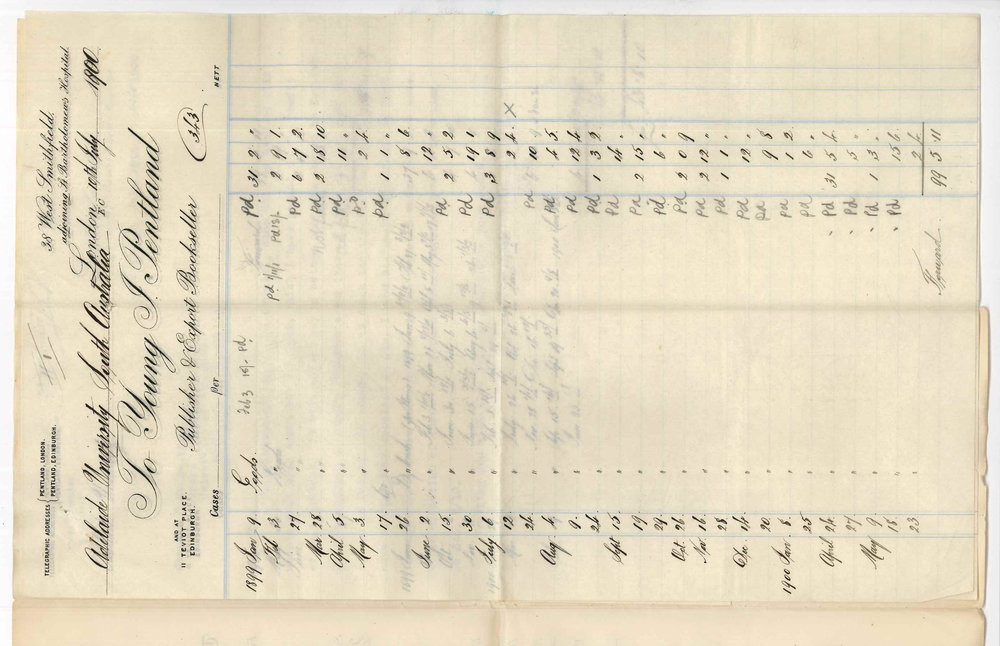 TELEGRAPHIC ADDRESSES { PENTLAND, LONDON.
PENTLAND, EDINBURGH.
38 West Smithfield.
adjoining St Bartholomew's Hospital.
London E C 10th July 1900
Adelaide University South Australia
To Young J. Pentland
AND AT
11 TEVIOT PLACE,
EDINBURGH.
Publisher & Export Bookseller 343
Cases per NETT
1899 Jan 9 Goods Feb 3 15/- pd. Pd 31 2 "
Feb 3 " pd 1/11/1 pd 13/- 2 9 1
27 " Pd 6 7 2
Mar 28 " Pd 2 15 10
April 5 " Pd 11 "
May 3 " Pd 2 4
17 " Pd 1 1 "
26 " 8 6
June 2 " 2 12 "
15 " Pd 5 5 2
30 " Pd 1 19 1
July 6 " Pd 3 8 9
12 " 2 4 X
26 " Pd 10 "
Aug 4 " Pd 4 5
9 " Pd 12 4
24 " Pd 1 3 2
Sept 15 " Pd 14 "
19 " Pd 2 15 "
29 " Pd 6 "
Oct 26 " Pd 2 0 9
Nov 16 " Pd 2 12 "
28 " Pd 1 1 "
Dec 14 " Pd 12 "
20 " Pd 9 8
1900 Jan 8 " Pd 1 2
25 " Pd 6 "
April 24 " " Pd 31 5 4
27 " " Pd 5 "
May 9 " " Pd 1 3 "
18 " " Pd 15 6
23 " 2 4
Forward 99 5 11